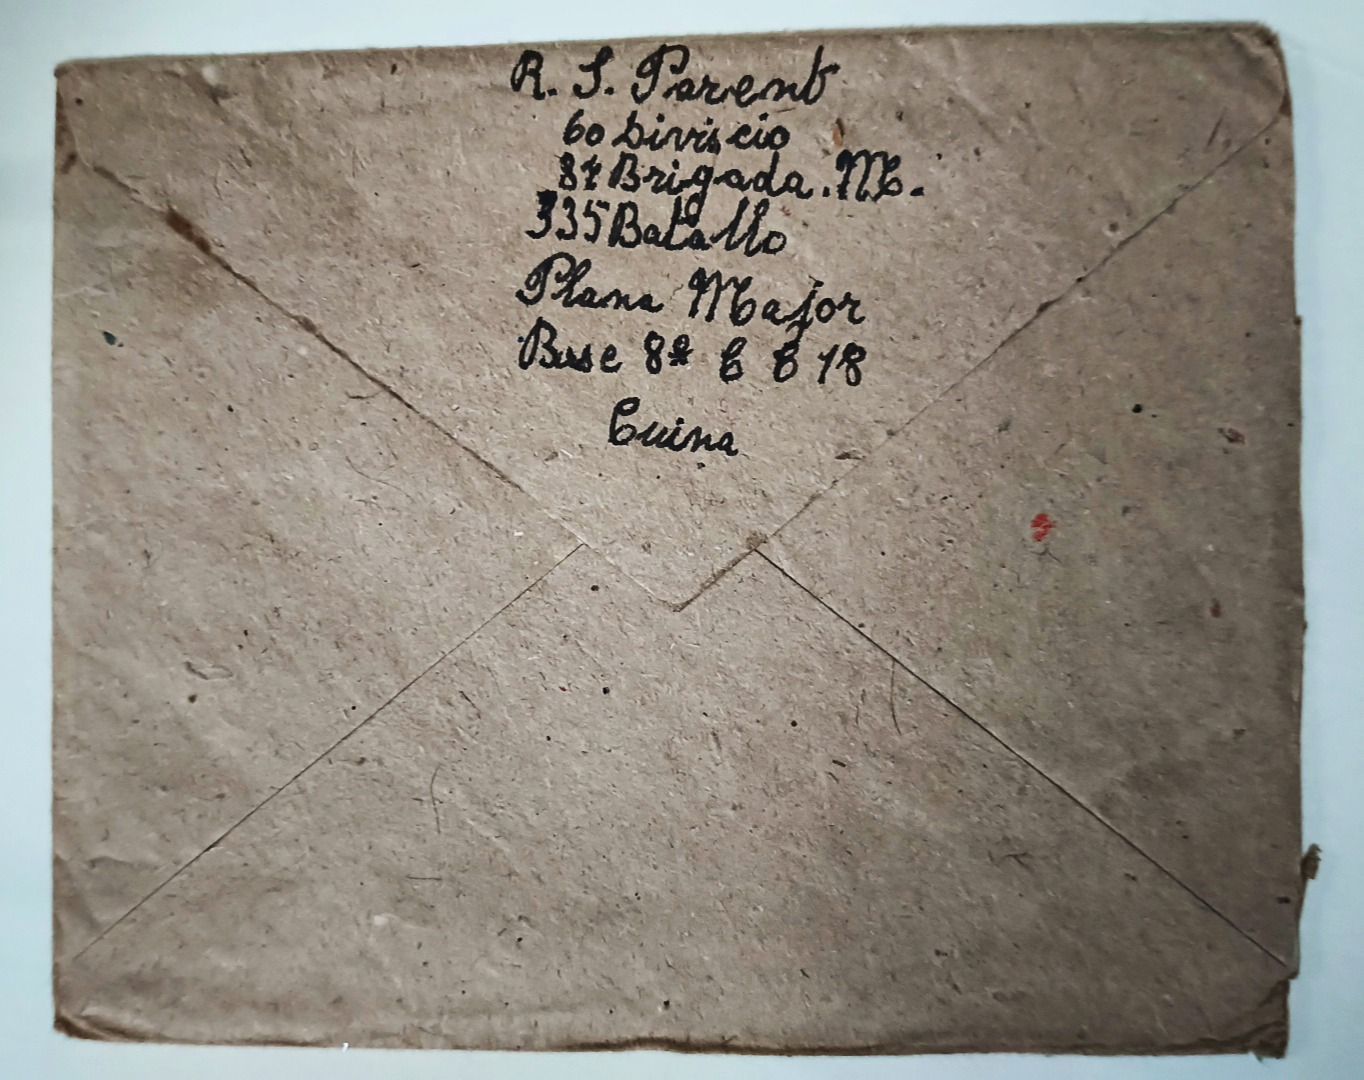 R. S. Parent
60 Diviscio
84 Brigada. M.
335 Batallo
Plana Major
Base 8ª C C 18
Cuina